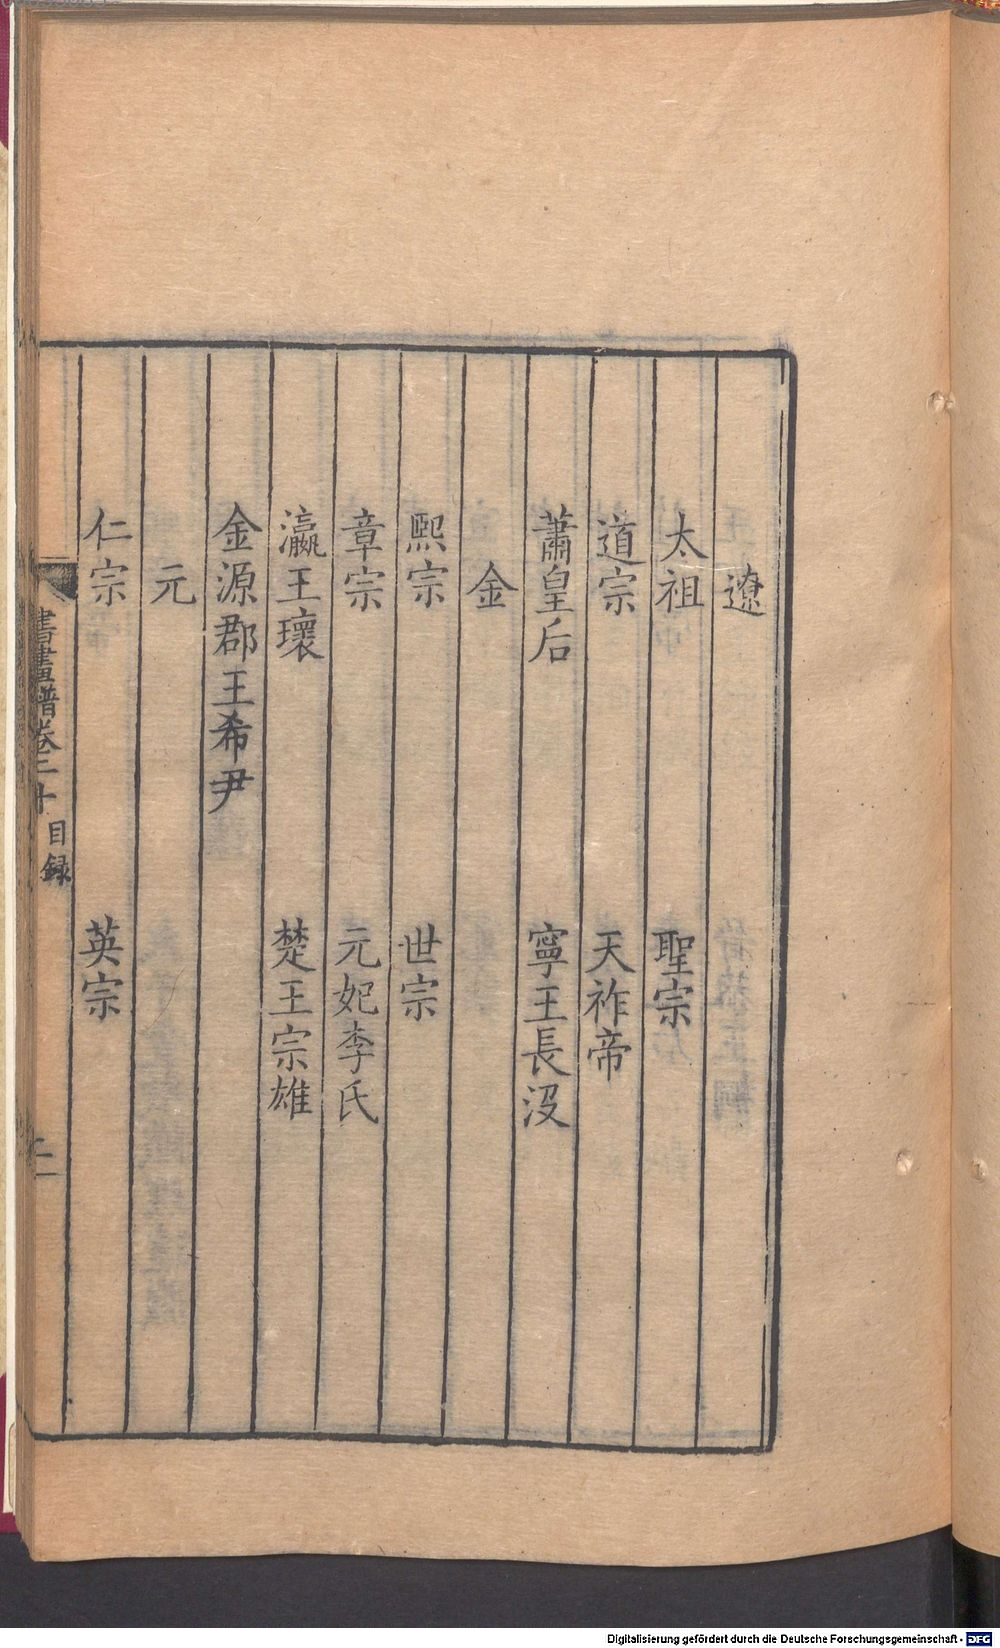 遼
太祖　聖宗
道宗　天祚帝
蕭皇后　寧王長沒
金
熙宗　世宗
章宗　元妃李氏
瀛王瓌　楚王宗雄
金源郡王希尹
元
仁宗　英宗
書畫譜卷二十　目録
Digitalisierung gefördert durch die Deutsche Forschungsgemeinschaft - DFG